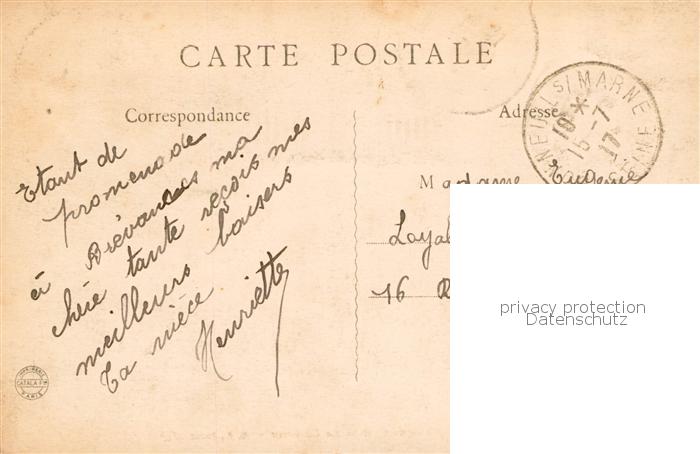 CARTE POSTALE
Correspondance
Etant de
promenade
à Brévannes ma
chère tante reçois mes
meilleurs baisers
Ta nièce
Henriette
Adresse
NEUIL S/ MARNE
18 *
15 - 7
17
Madame Eugénie
Loyal
16
privacy protection
Datenschutz
IMPRIMERIE
CATALA Fres
PARIS